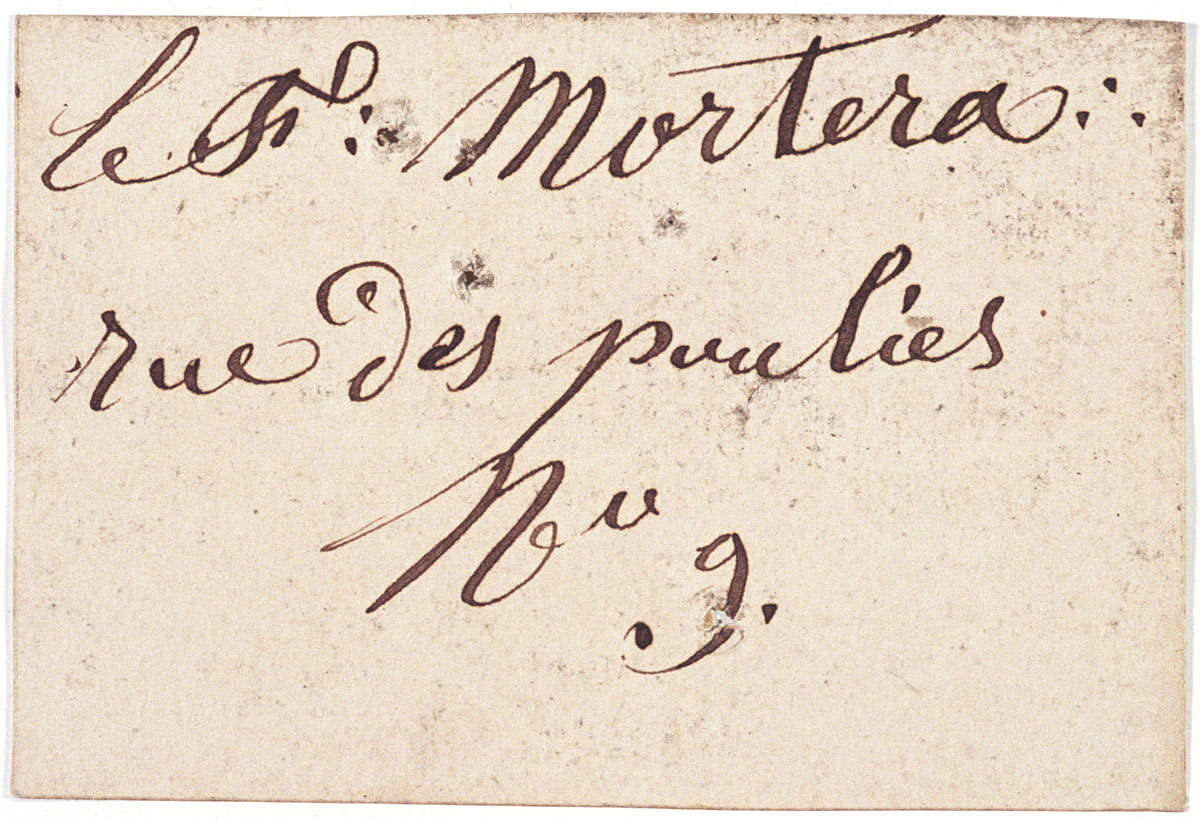 le Fr: Mortera:.
rue des poulies
No 9.